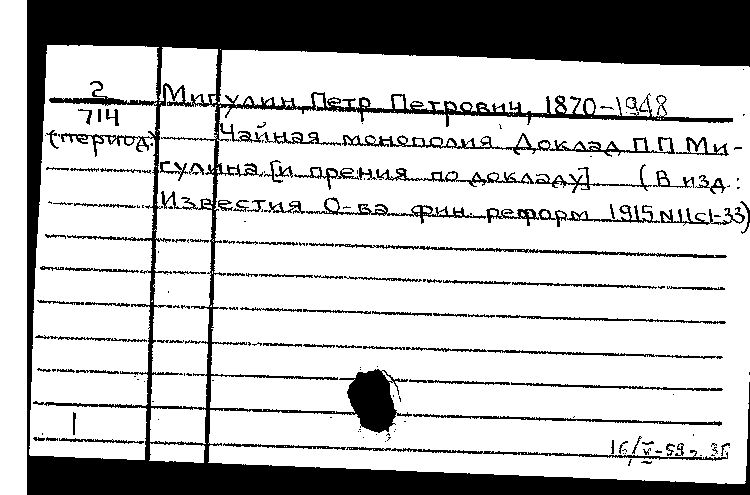 2
714
(период.)
Мигулин, Петр Петрович, 1870-1948
Чайная монополия Доклад П.П Ми-
гулина [и прения по докладу] (В изд:
Известия О-ва фин. реформ 1915 N11 с1-33)
1
16/V-59г.